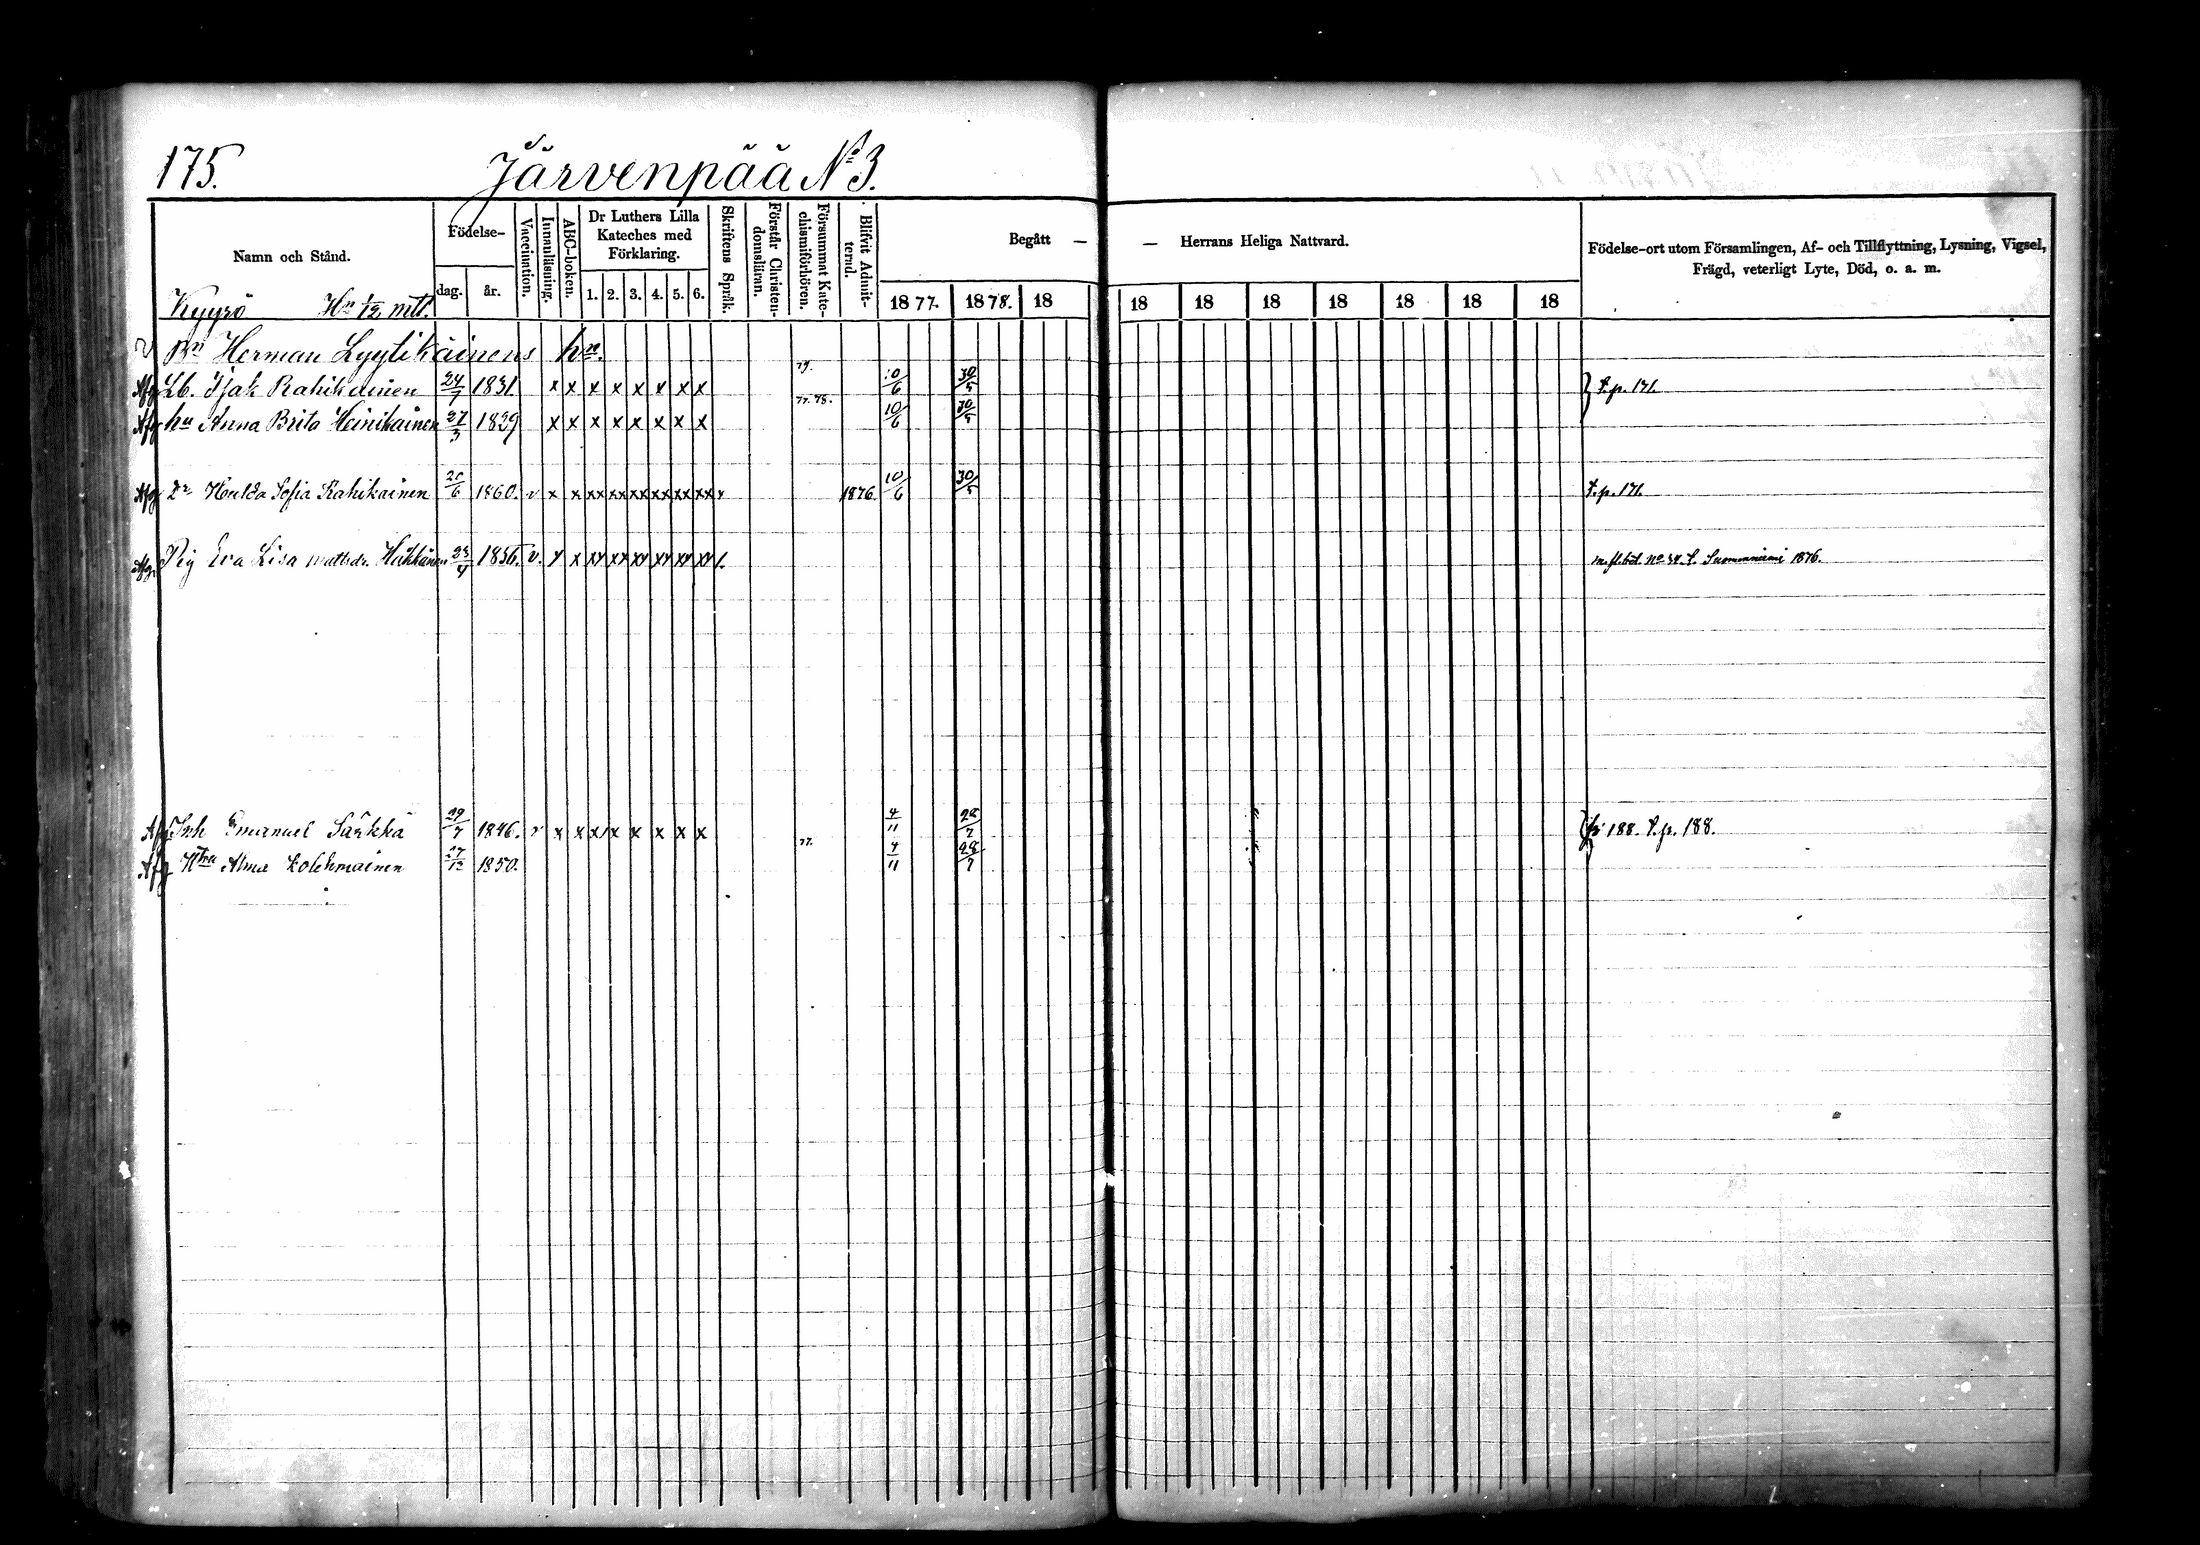 175. Järvenpää No 3.
Namn och Stånd. Födelse- dag. år. Vaccination. Innanläsning. ABC-boken. Dr Luthers Lilla Kateches med Förklaring. 1. 2. 3. 4. 5. 6. Skriftens Språk. Förstår Christendomsläran. Försummat Katechismiförhören. Blifvit Admitterad. Begått — — Herrans Heliga Nattvard. Födelse-ort utom Församlingen, Af- och Tillflyttning, Lysning, Vigsel, Frägd, veterligt Lyte, Död, o. a. m.
1877. 1878. 18 18 18 18 18 18 18 18
Kyyrö Hn 1/12 mtl.
Bn Herman Lyytikäinens hn.
Afg Lb. Isak Rahikainen 24/7 1831. x x x x x x x x 79. 10/6 30/5 T.p. 171.
Afg hu Anna Brita Heinikainen 27/3 1829 x x x x x x x x 77. 78. 10/6 30/5
Afg Dr Hulda Sofia Rahikainen 1860. v x x xx xx xx xx xx xx x 1876. 10/6 30/5 T.p. 171.
Afg. Pig Eva Lisa mattsdr. Häkkänen 23/4 1856. v. x x xx xx xx xx xx xx No 34. Suomenniemi 1876.
Afg Inh Emanuel Särkkä 29/7 1846. v x x xx x x x x x 4/11 28/7 188. T.p. 188.
Afg Htru Alma Kolehmainen 27/12 1850. 77. 4/11 28/7